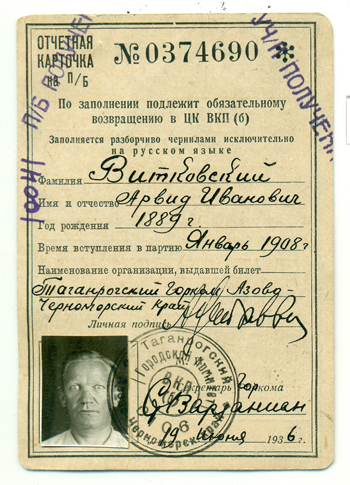 ОТЧЕТНАЯ
КАРТОЧКА
на П/Б
№ 0374690 *
По заполнении подлежит обязательному
возвращению в ЦК ВКП (б)
Заполняется разборчиво чернилами исключительно
на русском языке
Фамилия Витковский
Имя и отчество Арвид Иванович
Год рождения 1889 г
Время вступления в партию Январь 1908 г
Наименование организации, выдавшей билет
Таганрогский Горком Азово-
Черноморский Край
Личная подпись
Таганрогский
Городской Комитет
Черноморск. Края
Секретарь Горкома
Варданиан
19 Июня 1936 г.
П/Б ПОЛУЧЕН
УЧ/К ПОЛУЧЕН